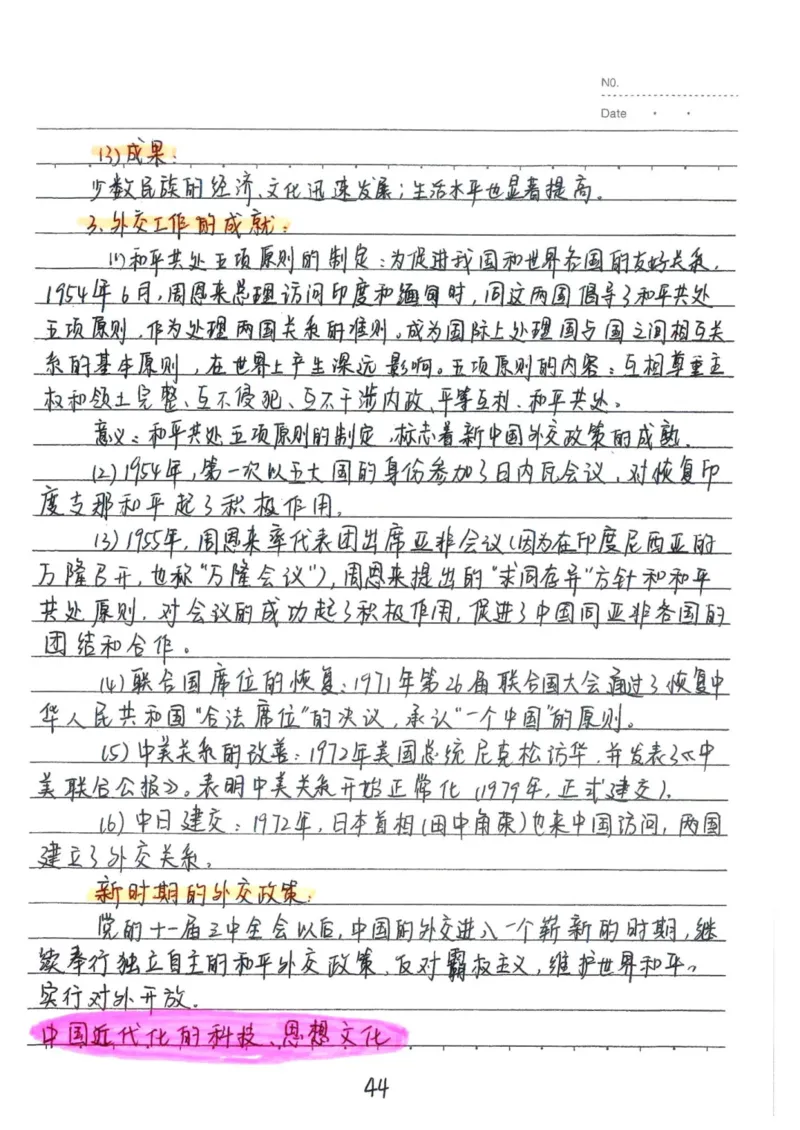 NO.
Date
(3)成果:
少数民族的经济、文化迅速发展;生活水平也显著提高。
3、外交工作的成就:
(1)和平共处五项原则的制定:为促进我国和世界各国的友好关系,
1954年6月,周恩来总理访问印度和缅甸时,同这两国倡导了和平共处
五项原则,作为处理两国关系的准则。成为国际上处理国与国之间相互关
系的基本原则,在世界上产生深远影响。五项原则的内容:互相尊重主
权和领土完整、互不侵犯、互不干涉内政、平等互利、和平共处。
意义:和平共处五项原则的制定,标志着新中国外交政策的成熟。
(2)1954年,第一次以五大国的身份参加了日内瓦会议,对恢复印
度支那和平起了积极作用。
(3)1955年,周恩来率代表团出席亚非会议(因为在印度尼西亚的
万隆召开,也称“万隆会议”),周恩来提出的“求同存异”方针和和平
共处原则,对会议的成功起了积极作用,促进了中国同亚非各国的
团结和合作。
(4)联合国席位的恢复:1971年第26届联合国大会通过了恢复中
华人民共和国“合法席位”的决议,承认“一个中国”的原则。
(5)中美关系的改善:1972年美国总统尼克松访华,并发表了《中
美联合公报》。表明中美关系开始正常化(1979年,正式建交)。
(6)中日建交:1972年,日本首相(田中角荣)也来中国访问,两国
建立了外交关系。
新时期的外交政策:
党的十一届三中全会以后,中国的外交进入一个崭新的时期,继
续奉行独立自主的和平外交政策,反对霸权主义,维护世界和平。
实行对外开放。
中国近代化的科技、思想文化
44